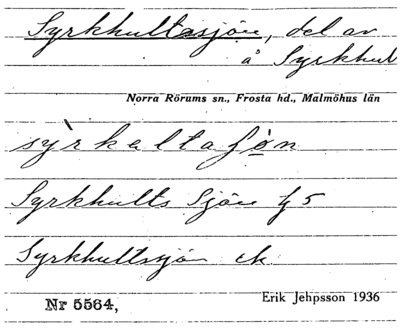 Syrkhultasjön, del av
å Syrkhult
Norra Rörums sn., Frosta hd., Malmöhus län
sỳrkaltaʃøn
Syrkhults Sjön
Syrkhultsjön ek
Nr 5564,
Erik Jehpsson 1936